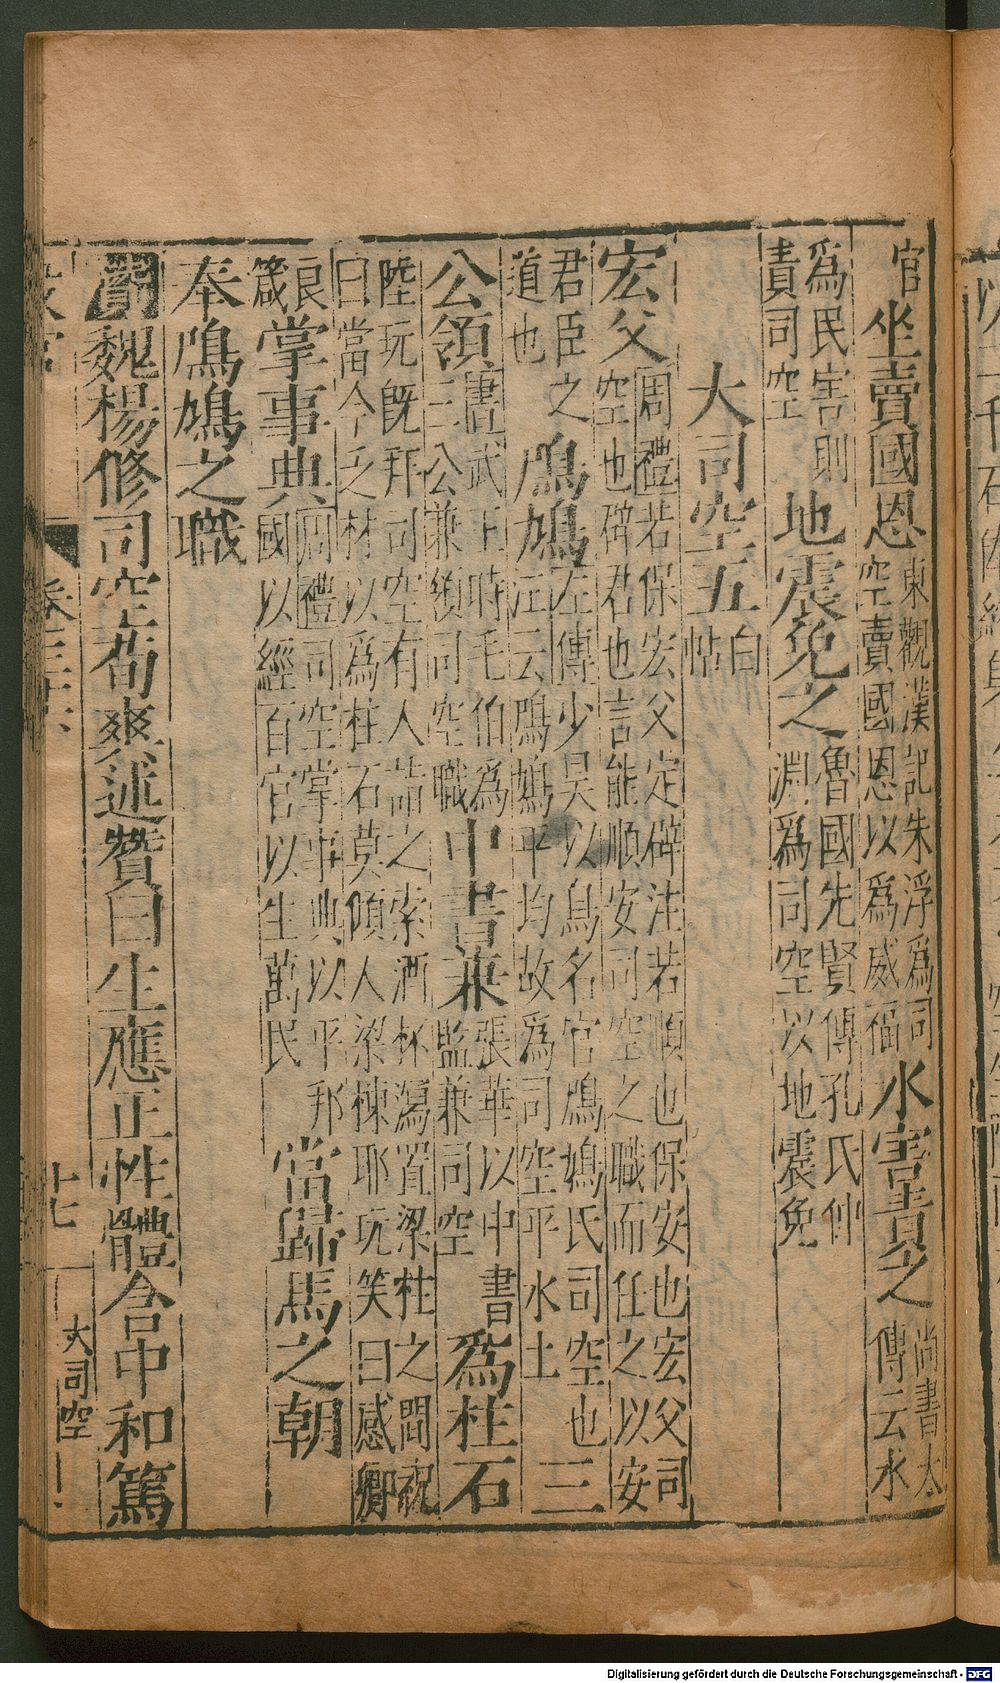 官坐賣國恩東觀漢記朱浮爲司空賣國恩以爲威福水害責之尚書大傳云水
爲民害則責司空地震免之魯國先賢傳孔氏仲淵爲司空以地震免
大司空五白帖
宏父周禮若保宏父定辟注若順也保安也宏父司空也辟君也言能順安司空之職而任之以安
君臣之道也鳲鳩左傳少昊以鳥名官鳲鳩氏司空也注云鳲鳩平均故爲司空平水土三
公領書武王時毛伯爲三公兼領司空職中書兼張華以中書監兼司空爲柱石
陸玩旣拜司空有人詣之索酒杯瀉置梁柱之間祝曰當今乏材以爲柱石莫傾人梁棟耶玩笑曰感卿
良箴掌事典周禮司空掌事典以平邦國以經百官以生萬民當歸馬之朝
奉鳲鳩之職
魏楊修司空荀爽述贊曰生應正性體含中和篤
十七
大司空
Digitalisierung gefördert durch die Deutsche Forschungsgemeinschaft - DFG